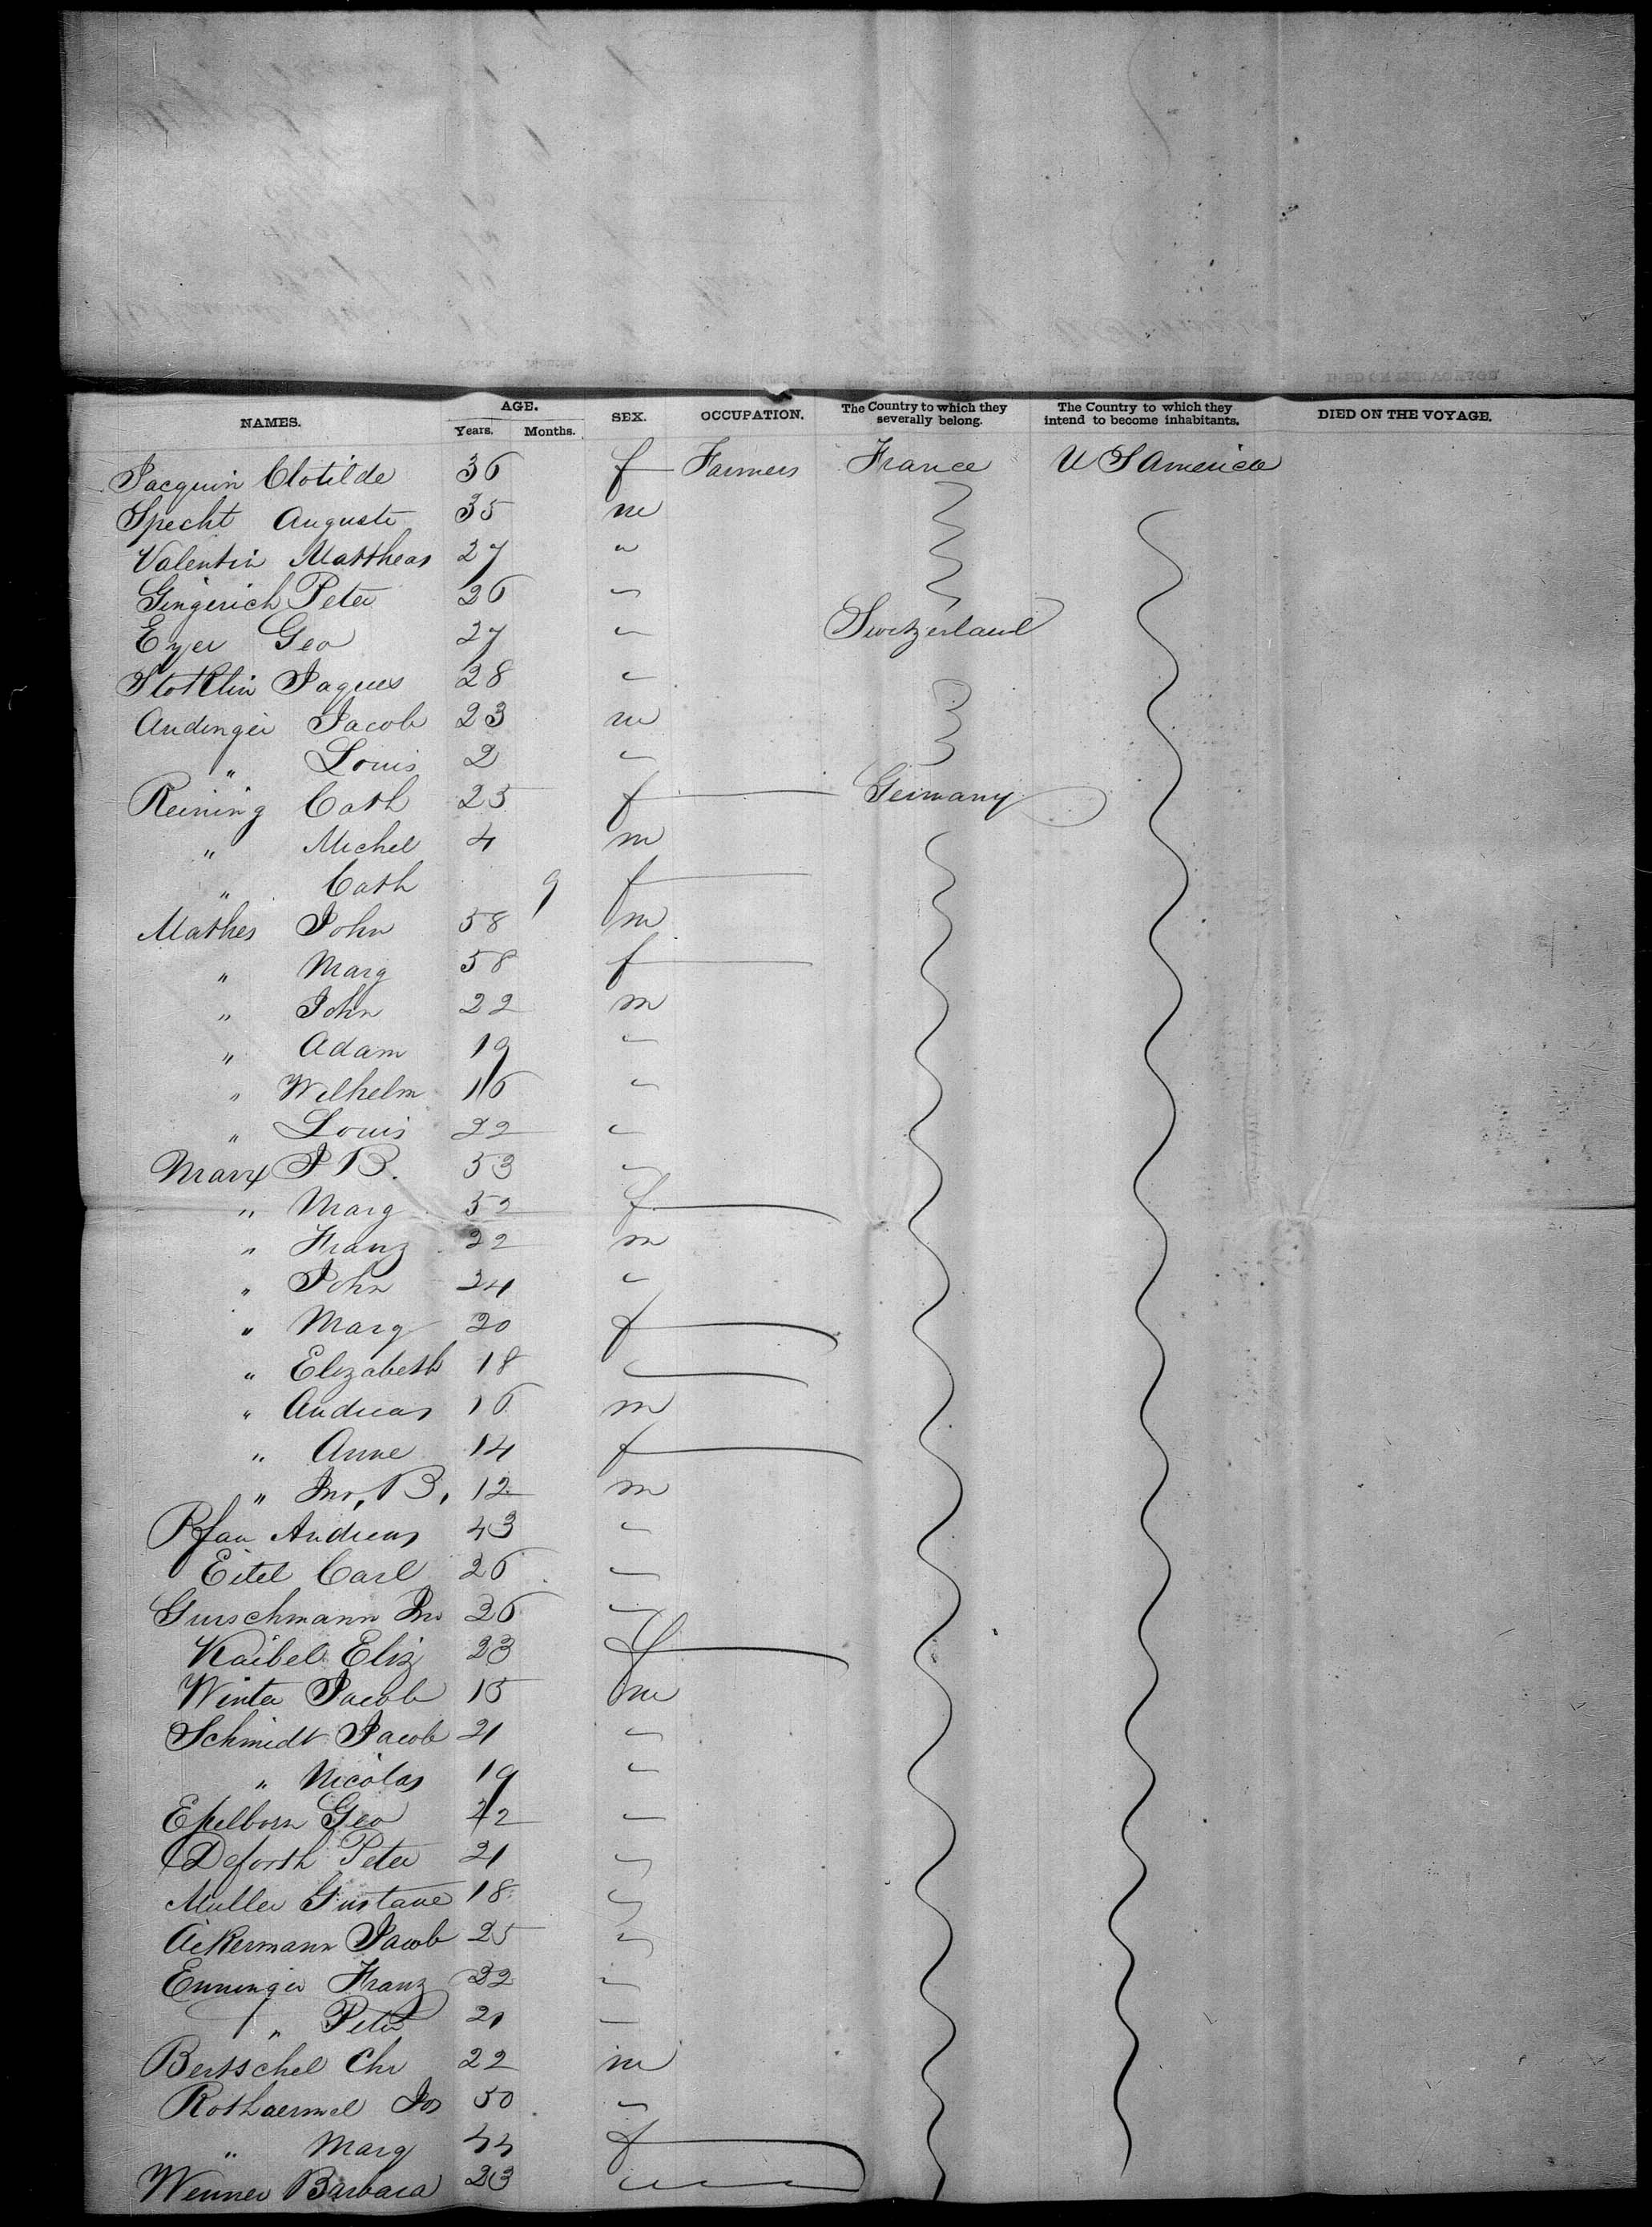 NAMES. AGE. Years. Months. SEX. OCCUPATION. The Country to which they severally belong. The Country to which they intend to become inhabitants. DIED ON THE VOYAGE.
Jacquin Clotilde 36 f Farmers France U S America
Specht Auguste 35 m
Valentin Mattheas 27 "
Gingerich Peter 26 "
Eyer Geo 27 " Switzerland
Stotklin Jaques 28 "
Andinger Jacob 23 m
" Louis 2 "
Reining Cath 25 f Germany
" Michel 4 m
" Cath 9 f
Mathes John 58 m
" Marg 58 f
" John 22 m
" Adam 19 "
" Wilhelm 16 "
" Louis 22 "
Marx J B. 53 "
" Marg 52 f
" Franz 22 m
" John 24 "
" Marg 20 f
" Elizabeth 18 "
" Andreas 16 m
" Anne 14 f
" Jno, B, 12 m
Pfau Andreas 43 "
Eitel Carl 26 "
Gurschmann Jno 26 "
Kaibel Eliz 23 f
Winter Jacob 15 m
Schmidt Jacob 21 "
" Nicolas 19 "
Epelborn Geo 22 "
Deforth Peter 21 "
Muller Gustave 18 "
Ackermann Jacob 25 "
Enninger Franz 22 "
" Peter 21 "
Bertschel Chr 22 m
Rothaermel Jos 50 "
" Marg 44 f
Wenner Barbara 23 "